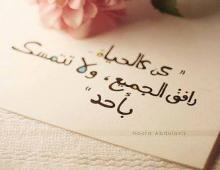 "كن كالحياة
رافق الجميع، ولا تتمسك
بأحد"
Noora Abdulaziz